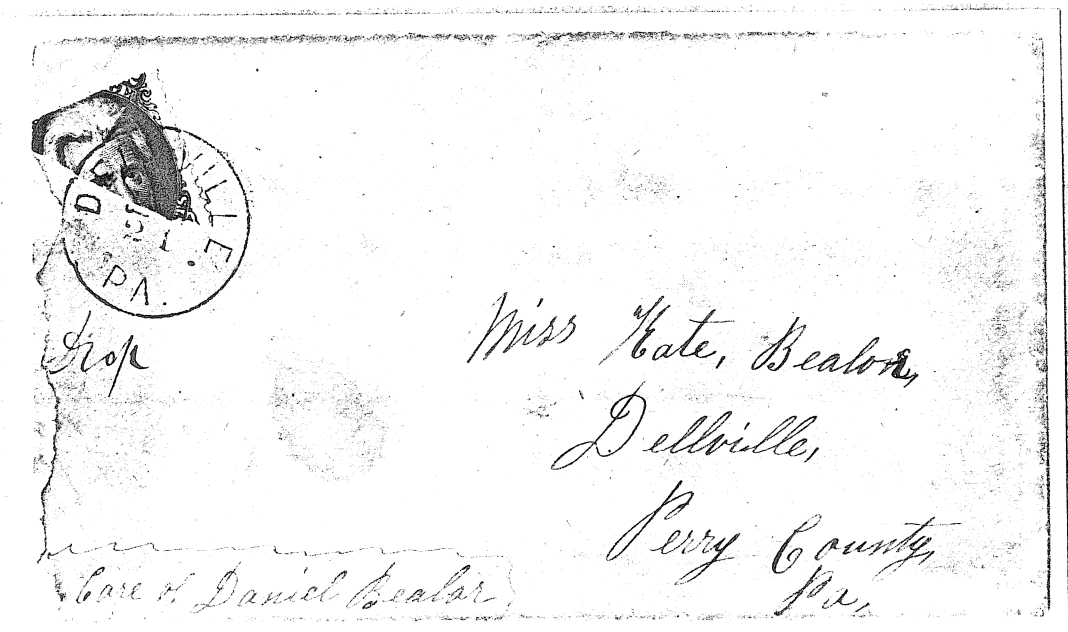 DELLVILLE.
21
PA.
Drop
Miss Kate, Bealor,
Dellville,
Perry County,
Pa,
Care of Daniel Bealor